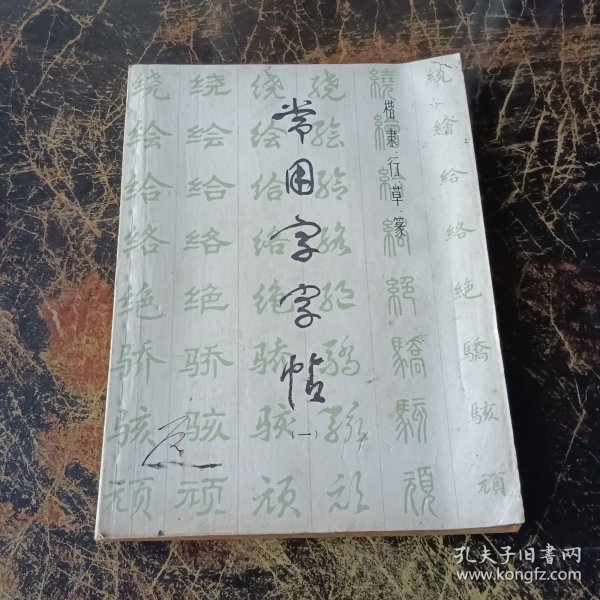 楷隶·行·草·篆
常用字字帖
(一)
绕 绕 绕 绕 繞 繞
绘 绘 绘 绘 繪 繪
给 给 给 给 給 給
络 络 络 络 絡 絡
绝 绝 绝 绝 絕 絶
骄 骄 骄 骄 驕 驕
骇 骇 骇 骇 駭 駭
颃 颃 颃 颃 頏 頏
孔夫子旧书网
www.kongfz.com